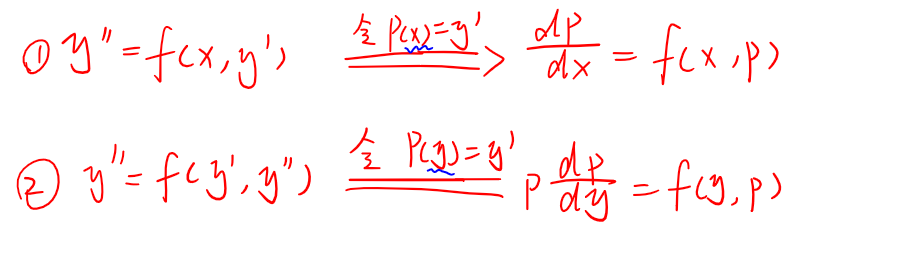 ① y" = f(x, y') 令 P(x) = y' ⟹ dp/dx = f(x, p)
② y" = f(y', y") 令 P(y) = y' p dp/dy = f(y, p)